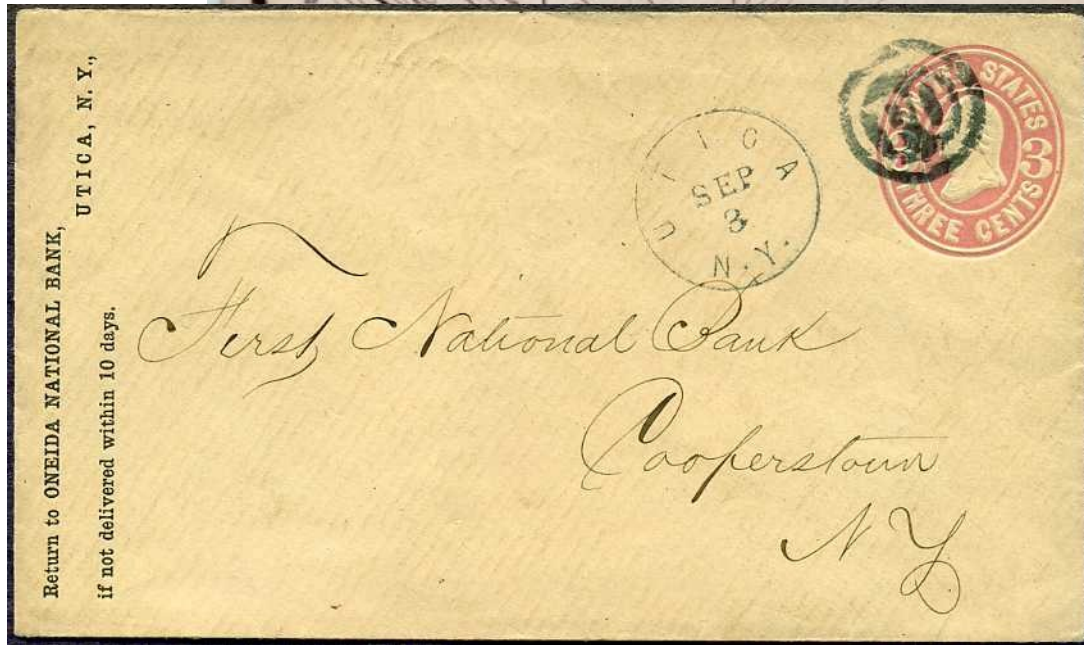 Return to ONEIDA NATIONAL BANK,
UTICA, N. Y.,
if not delivered within 10 days.
UTICA
SEP
3
N.Y.
UNITED STATES
3 3
THREE CENTS
First National Bank
Cooperstown
NY